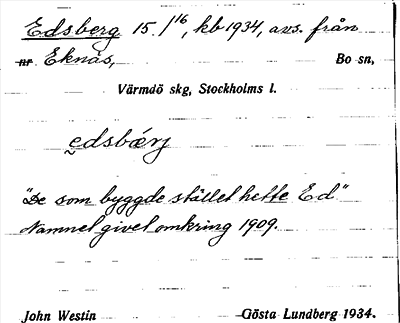 Edsberg 15/16, kb 1934, avs. från
nr Eknäs, Bo sn,
Värmdö skg, Stockholms l.
edsbærj
"De som byggde stället hette Ed"
Namnet givet omkring 1909.
John Westin Gösta Lundberg 1934.